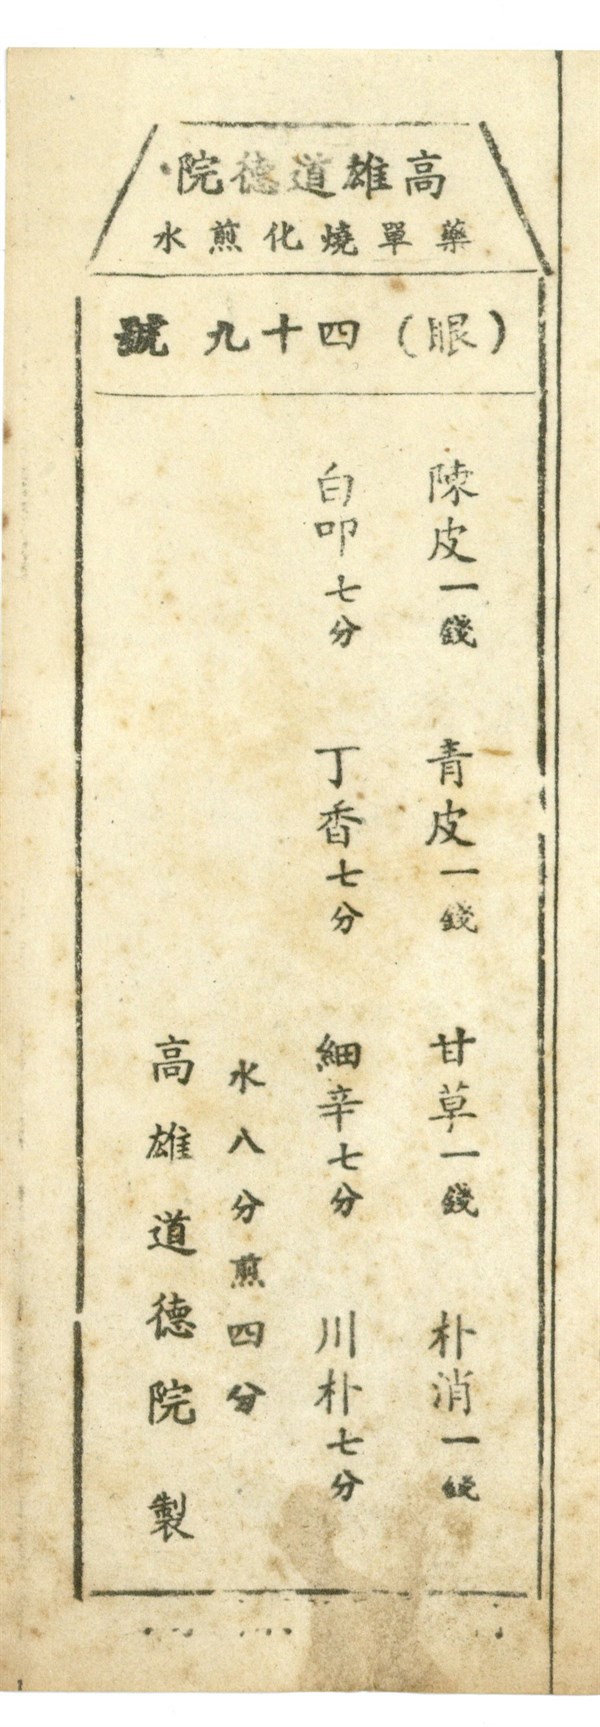 高雄道德院
藥單燒化煎水
(眼)四十九號
陳皮一錢 青皮一錢 甘草一錢 朴消一錢
白叩七分 丁香七分 細辛七分 川朴七分
水八分煎四分
高雄道德院製